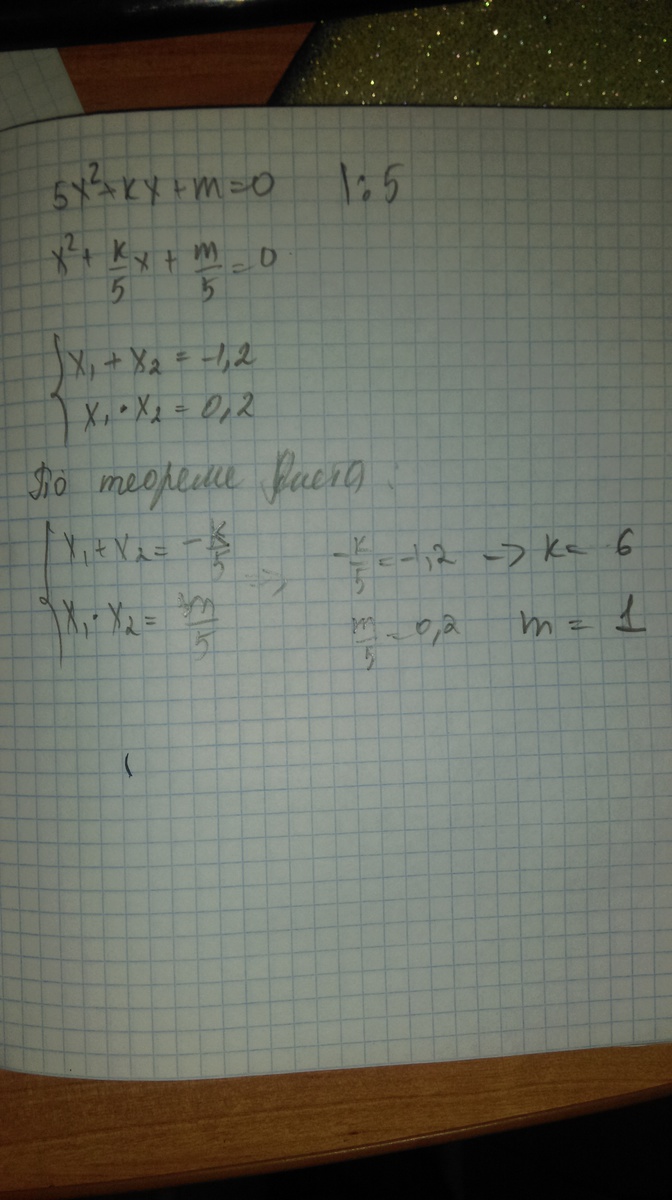 5x²+kx+m=0 |:5
x²+k/5x+m/5=0
{x₁+x₂=-1,2
x₁·x₂=0,2
По теореме Виета:
{x₁+x₂=-k/5 => -k/5=-1,2 -> k=6
x₁·x₂=m/5 m/5=0,2 m=1